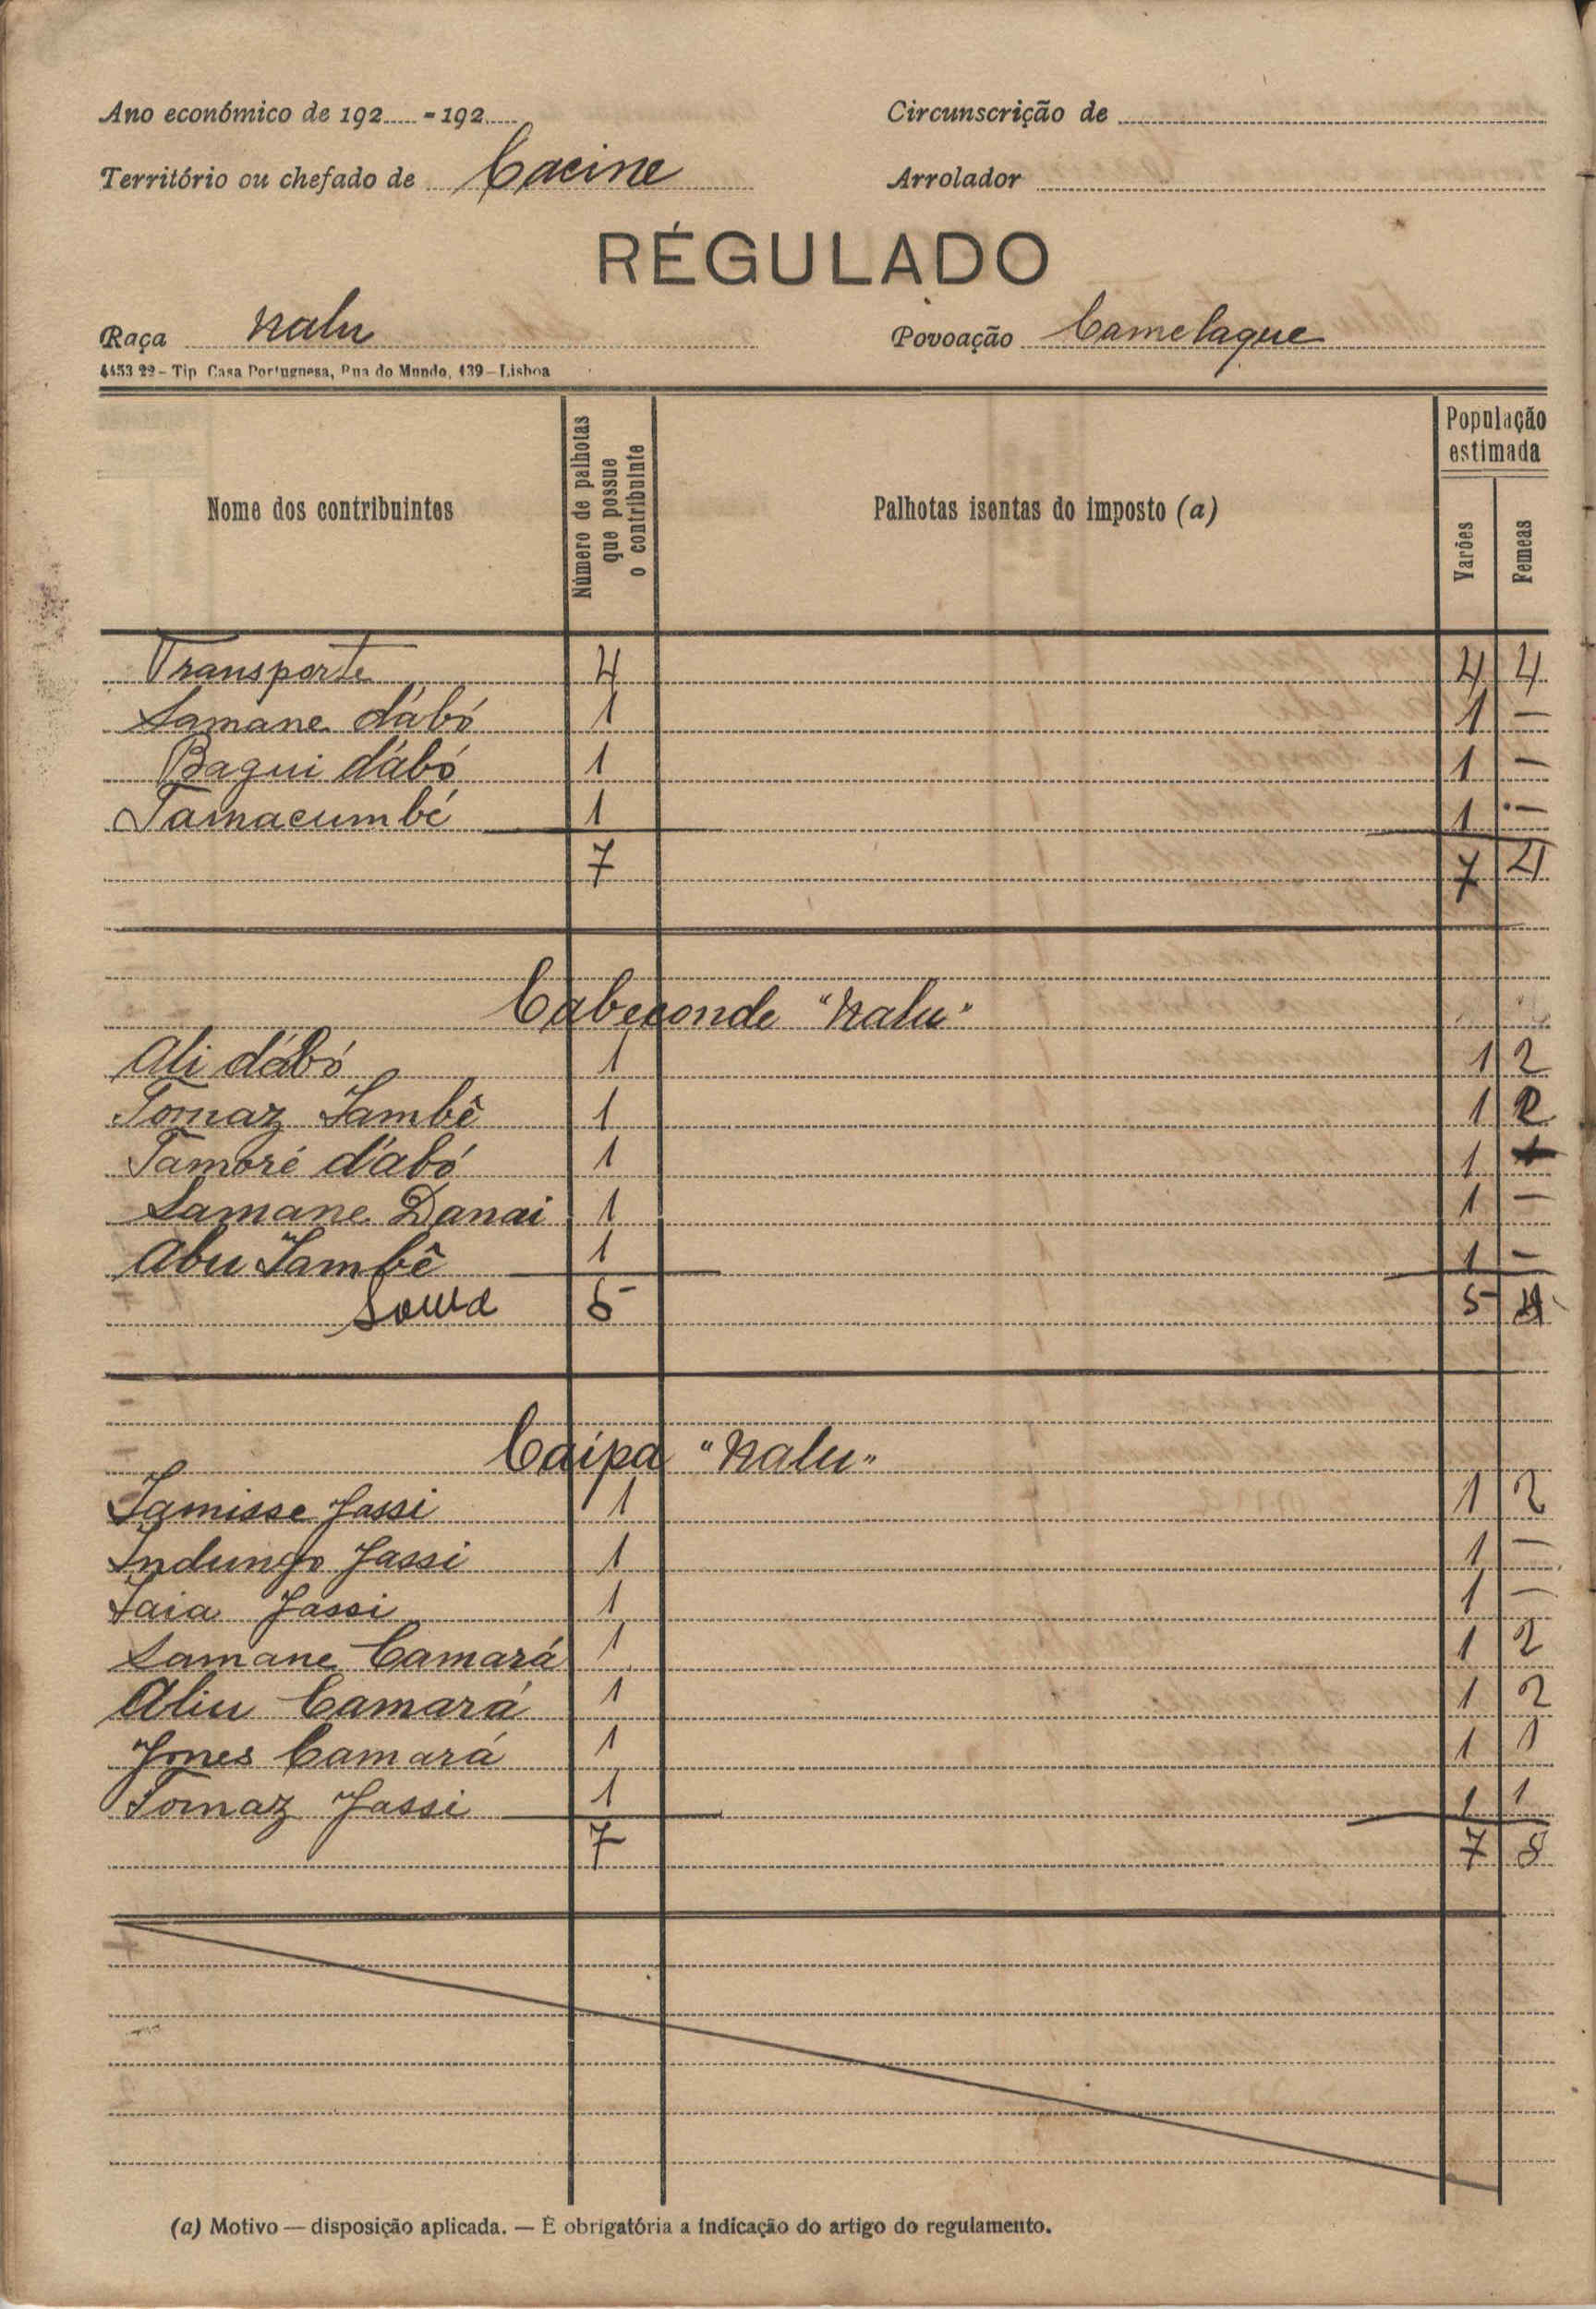 Ano económico de 192..... - 192..... Circunscrição de
Território ou chefado de Cacine Arrolador
RÉGULADO
Raça Nalu Povoação Camelaque
4453 22 – Tip Casa Portuguesa, Rua do Mundo, 139 – Lisboa
Nome dos contribuintes Número de palhotas que possue o contribuinte Palhotas isentas do imposto (a) População estimada Varões Femeas
Transporte 4 4 4
Samane dábó 1 1 —
Bagui dábó 1 1 —
Tamacumbé 1 1 —
7 7 4
Cabeconde "Nalu"
Ali dábó 1 1 2
Tomaz Sambê 1 1 2
Tamoré dábó 1 1
Samane Danai 1 1 —
Abu Sambê 1 1 —
Soma 5 5 4
Caipa "Nalu"
Samisse Jassi 1 1 2
Indungo Jassi 1 1 —
Saia Jassi 1 1 —
Samane Camará 1 1 2
Aliu Camará 1 1 2
Jmes Camará 1 1 1
Tomaz Jassi 1 1 1
7 7 8
(a) Motivo — disposição aplicada. — É obrigatória a indicação do artigo do regulamento.